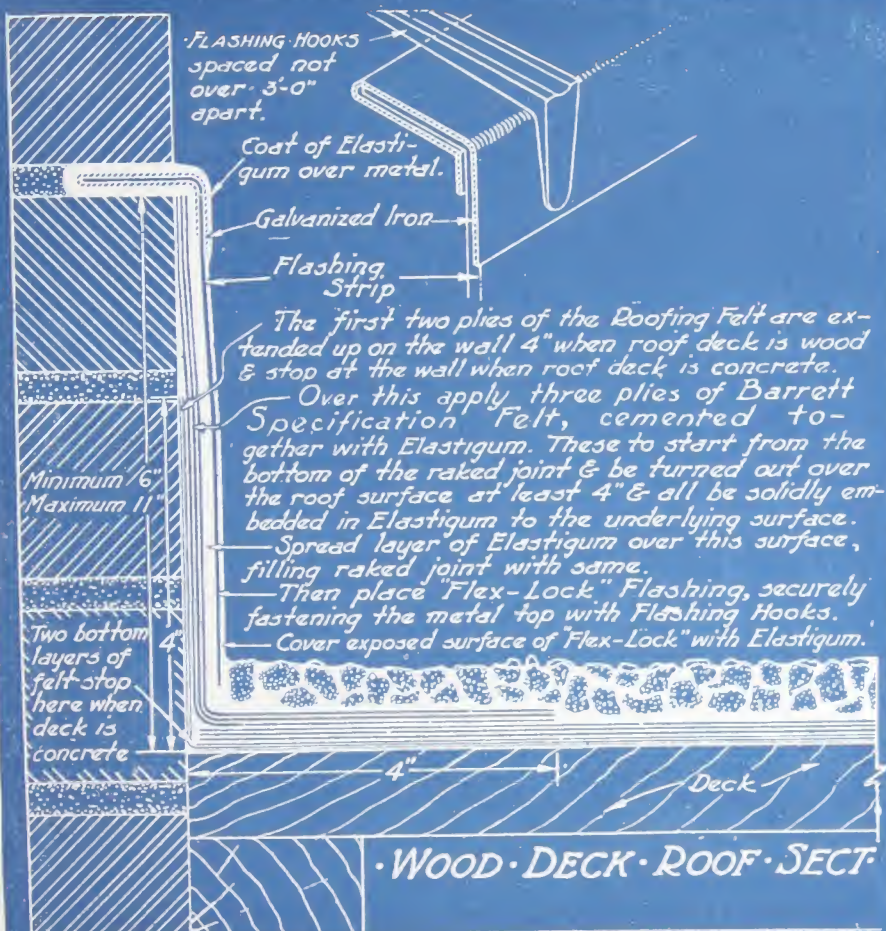 ·FLASHING·HOOKS
spaced not
over·3'-0"
apart.
Coat of Elasti-
gum over metal.
Galvanized Iron
Flashing
Strip
The first two plies of the Roofing Felt are ex-
tended up on the wall 4" when roof deck is wood
& stop at the wall when roof deck is concrete.
Over this apply three plies of Barrett
Specification Felt, cemented to-
gether with Elastigum. These to start from the
bottom of the raked joint & be turned out over
the roof surface at least 4" & all be solidly em-
bedded in Elastigum to the underlying surface.
Spread layer of Elastigum over this surface,
filling raked joint with same.
Then place "Flex-Lock" Flashing, securely
fastening the metal top with Flashing Hooks.
Cover exposed surface of "Flex-Lock" with Elastigum.
Minimum 6"
Maximum 11"
4"
Two bottom
layers of
felt stop
here when
deck is
concrete
4"
Deck
·WOOD·DECK·ROOF·SECT·